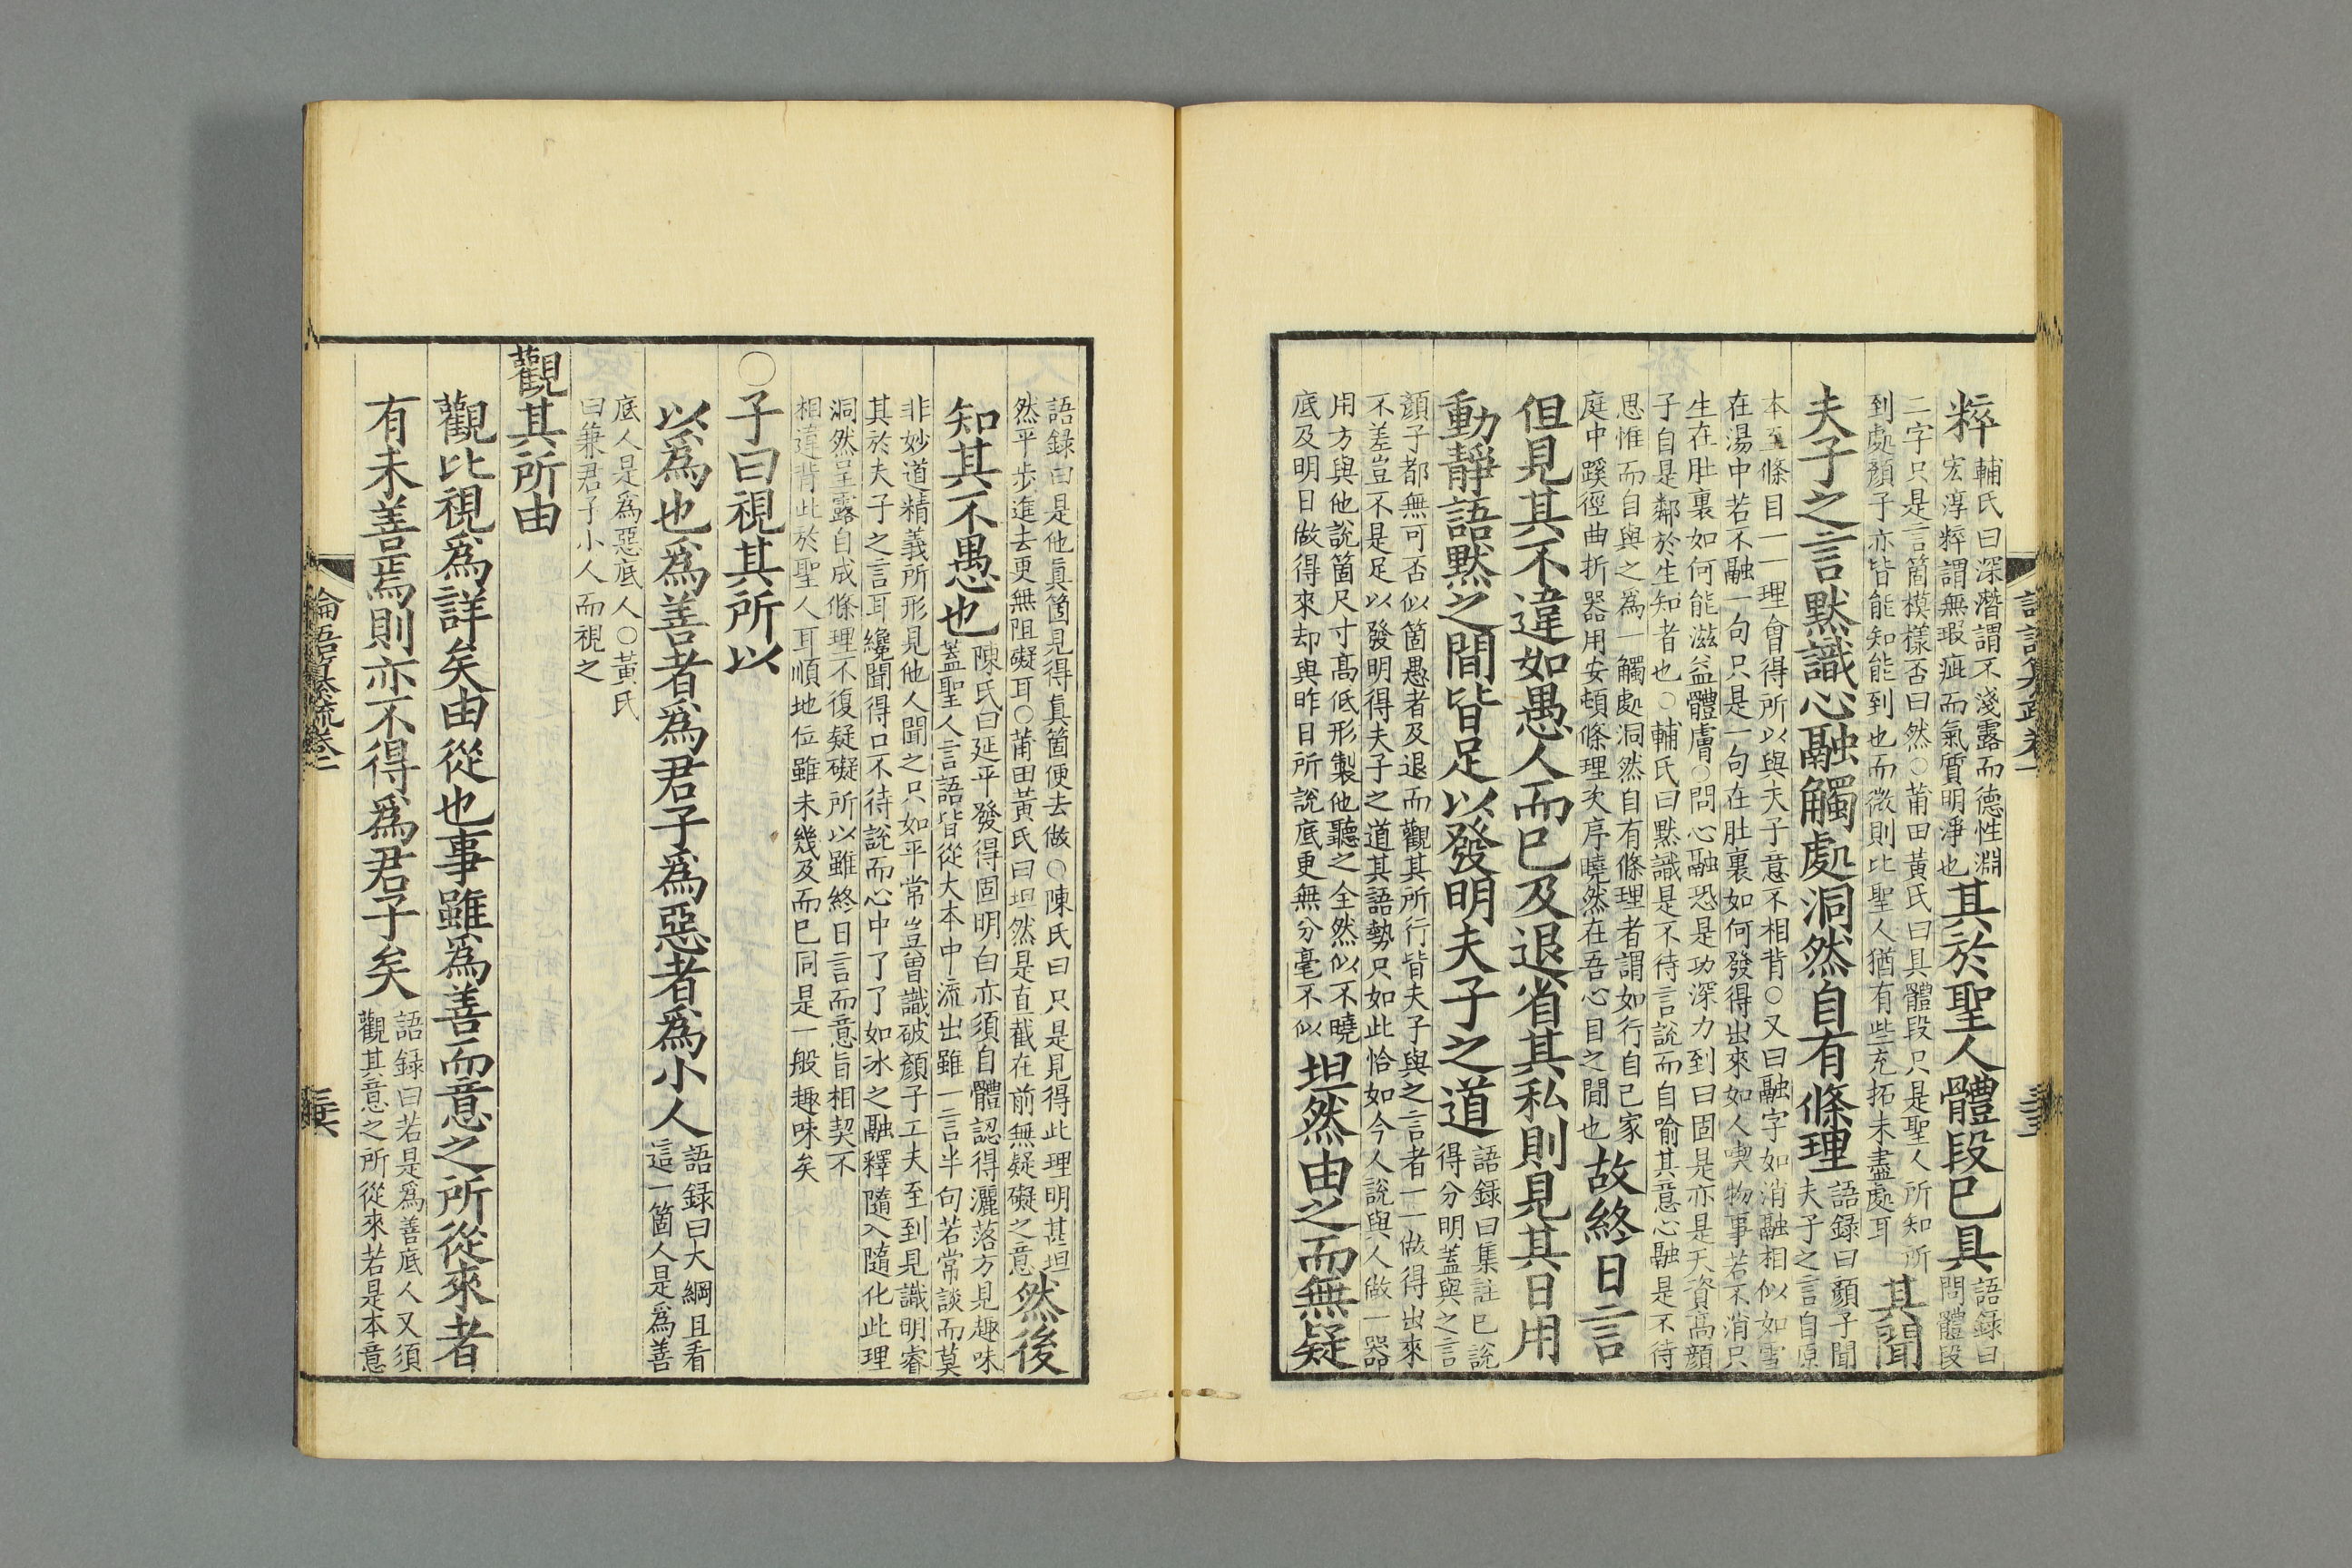 粹輔氏曰深潛謂不淺露而德性淵宏淳粹謂無瑕疵而氣質明淨也其於聖人體段已具語録曰問體段
二字只是言箇模樣否曰然○莆田黃氏曰具體段只是聖人所知所到處顏子亦皆能知能到也而微則比聖人猶有些充拓未盡處耳其聞
夫子之言黙識心融觸處洞然自有條理語録曰顏子聞夫子之言自原
本至條目一一理會得所以與夫子意不相背○又曰融字如消融相似如雪在湯中若不融一句只是一句在肚裏如何發得出來如人喫物事若不消只
生在肚裏如何能滋益體膚○問心融恐是功深力到曰固是亦是天資髙顏子自是鄰於生知者也○輔氏曰黙識是不待言說而自喻其意心融是不待
思惟而自與之為一觸處洞然自有條理者謂如行自己家庭中蹊徑曲折器用安頓條理次序曉然在吾心目之閒也故終日言
但見其不違如愚人而已及退省其私則見其日用
動靜語黙之間皆足以發明夫子之道語録曰集註已說得分明蓋與之言
顏子都無可否似箇愚者及退而觀其所行皆夫子與之言者一一做得出來不差豈不是足以發明得夫子之道其語勢只如此恰如今人說與人做一器
用方與他說箇尺寸髙低形製他聽之全然似不曉底及明日做得來却與昨日所說底更無分毫不似坦然由之而無疑
語録曰是他真箇見得真箇便去做○陳氏曰只是見得此理明甚坦然平步進去更無阻礙耳○莆田黃氏曰坦然是直截在前無疑礙之意然後
知其不愚也陳氏曰延平發得固明白亦須自體認得灑落方見趣味蓋聖人言語皆從大本中流出雖一言半句若常談而莫
非妙道精義所形見他人聞之只如平常豈曾識破顏子工夫至到見識明睿其於夫子之言耳纔聞得口不待說而心中了了如冰之融釋隨入隨化此理
洞然呈露自成條理不復疑礙所以雖終日言而意旨相契不相違背此於聖人耳順地位雖未幾及而已同是一般趣味矣
○子曰視其所以
以爲也爲善者爲君子爲惡者爲小人語録曰大綱且看這一箇人是爲善
底人是爲惡底人○黃氏曰兼君子小人而視之
觀其所由
觀比視爲詳矣由從也事雖爲善而意之所從來者
有未善焉則亦不得爲君子矣語録曰若是爲善底人又須觀其意之所從來若是本意
論語纂疏卷一